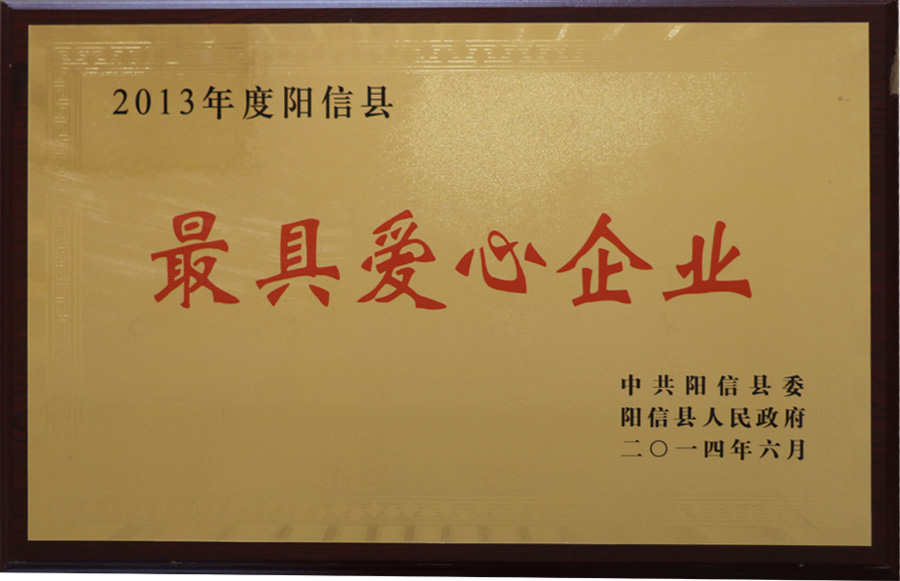 2013年度阳信县
最具爱心企业
中共阳信县委
阳信县人民政府
二〇一四年六月